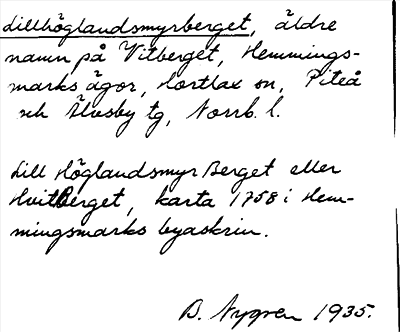 Lillhöglandsmyrberget, äldre
namn på Vitberget, Hemmings-
marks ägor, Hortlax sn, Piteå
och Älvsby tg, Norrb. l.
Lill Höglandsmyr Berget eller
HvitBerget, karta 1758 i Hem-
mingsmarks byaskrin.
D. Nygren 1935.